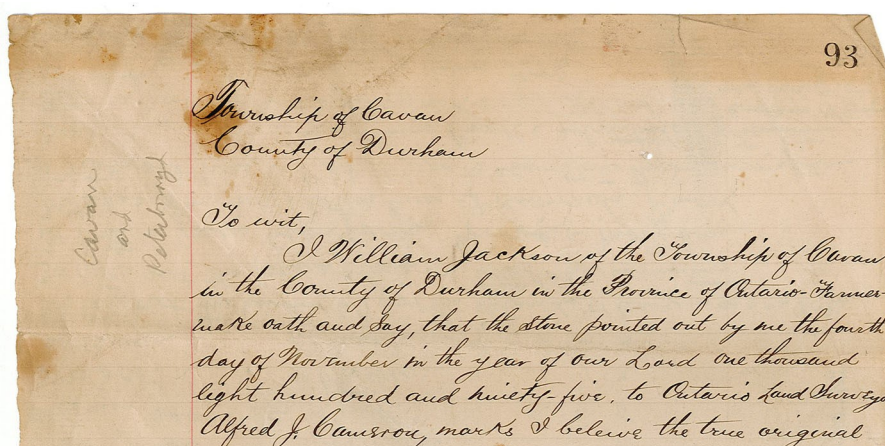 93
Township of Cavan
County of Durham
Cavan
and
Peterboroug
To wit,
I William Jackson of the Township of Cavan
in the County of Durham in the Province of Ontario-Farmer-
make oath and say, that the stone pointed out by me the fourth
day of November in the year of our Lord one thousand
eight hundred and ninety-five, to Ontario Land Surveyo
Alfred J. Cameron, marks I beleive the true original